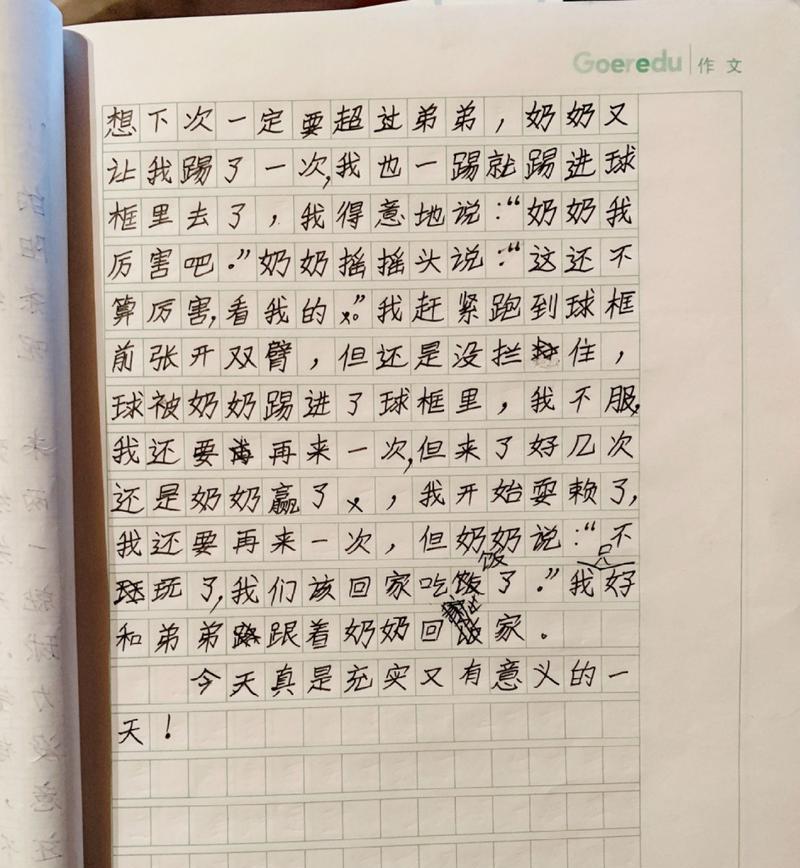 Goeredu 作文
想下次一定要超过弟弟，奶奶又
让我踢了一次，我也一踢就踢进球
框里去了，我得意地说：“奶奶我
厉害吧。”奶奶摇摇头说：“这还不
算厉害，看我的。”我赶紧跑到球框
前张开双臂，但还是没拦住，
球被奶奶踢进了球框里，我不服，
我还要再来一次，但来了好几次
还是奶奶赢了，我开始耍赖了，
我还要再来一次，但奶奶说：“不
玩了，我们该回家吃饭了。”我只好
和弟弟跟着奶奶回家。
今天真是充实又有意义的一
天！